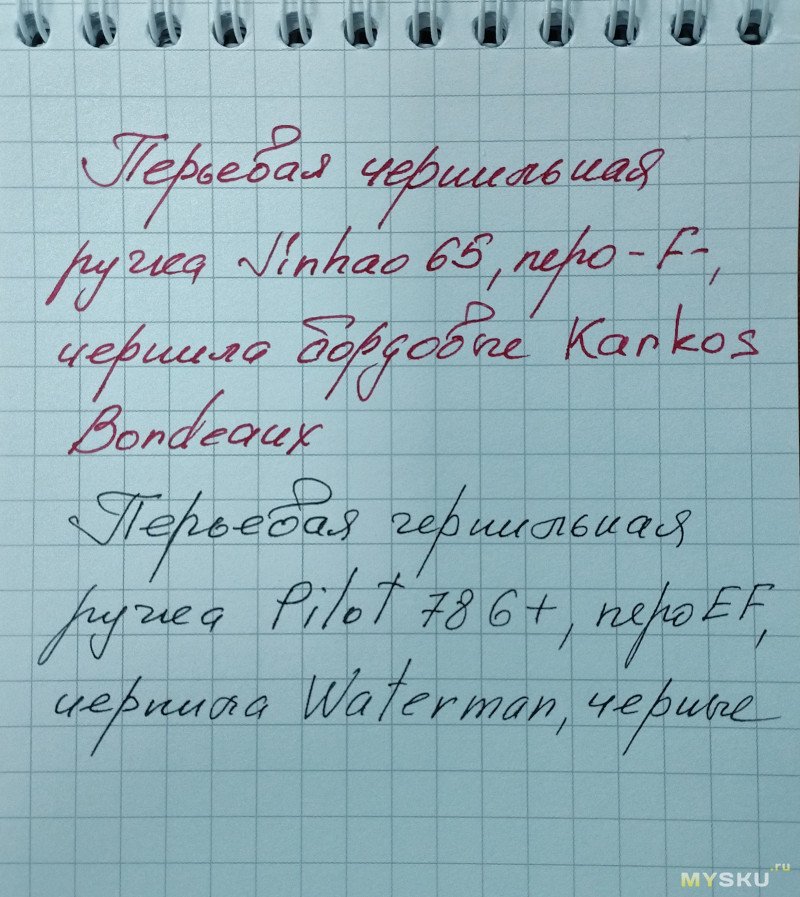 Перьевая чернильная
ручка Jinhao 65, перо -F-,
чернила бордовые Kankos
Bondeaux
Перьевая чернильная
ручка Pilot 78G+, перо EF,
чернила Waterman, черные
MYSKU.ru